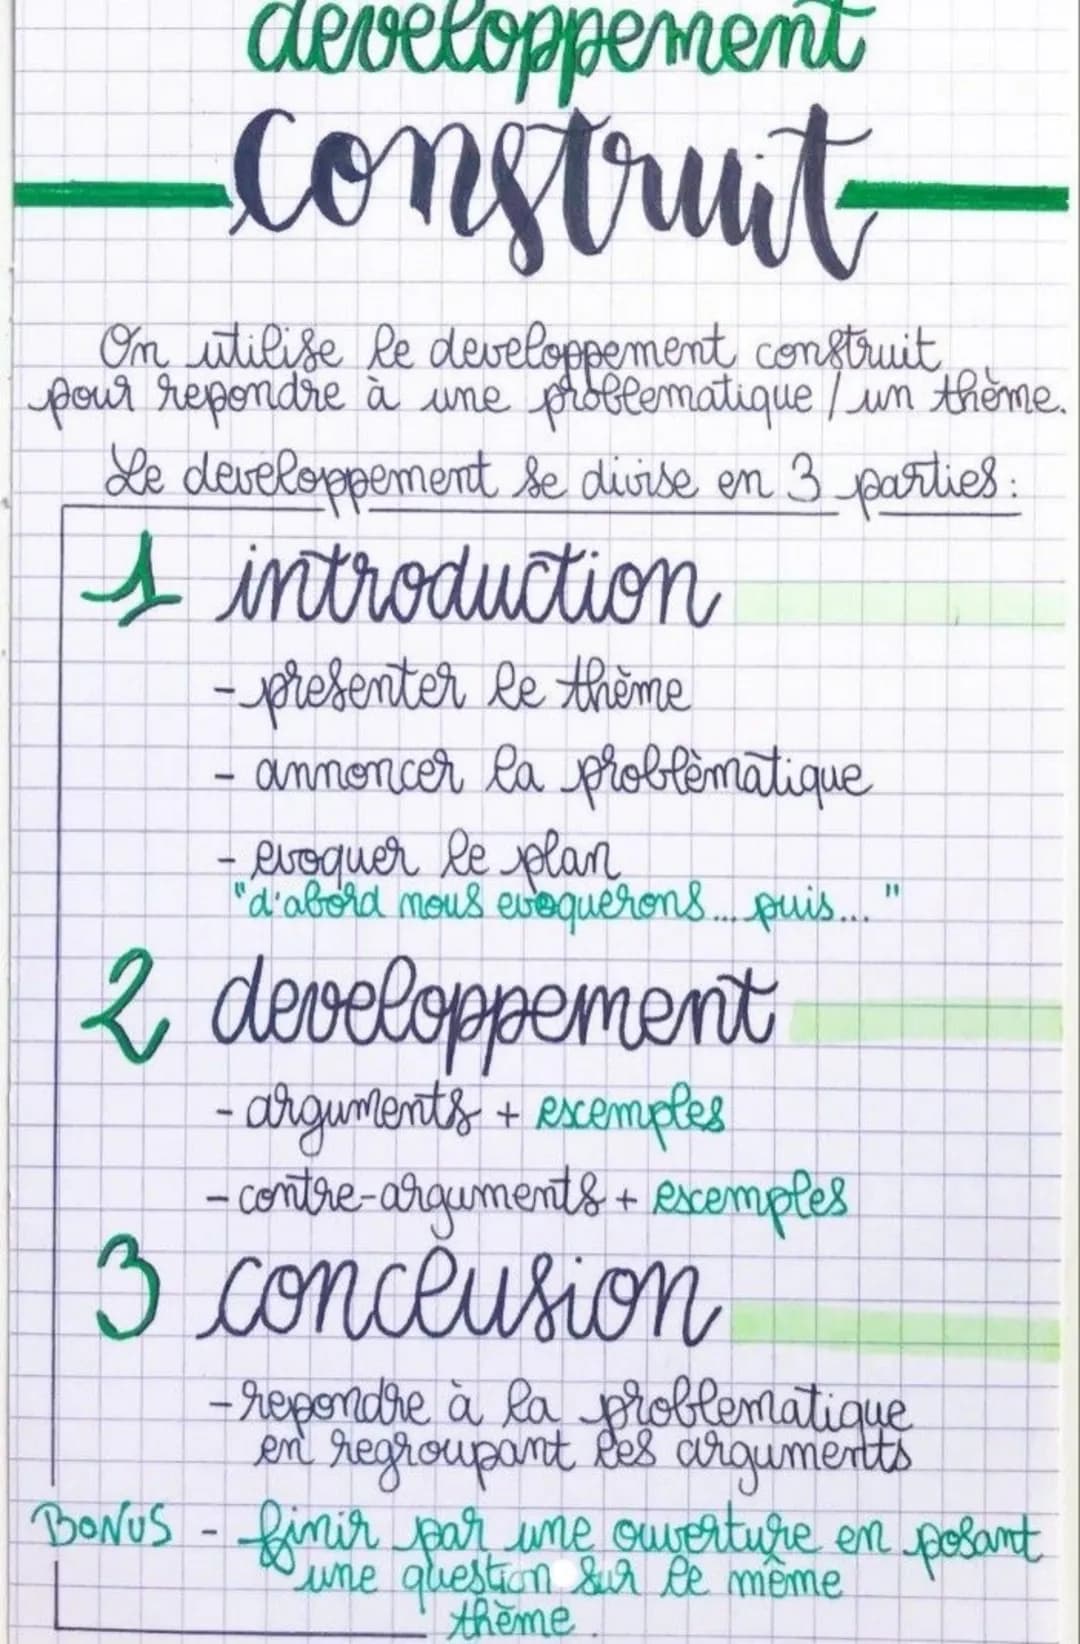 developpement
construit
On utilise le developpement construit
pour repondre à une problematique / un thème.
Le developpement se divise en 3 parties :
1 introduction
- presenter le thème
- annoncer la problèmatique
- evoquer le plan
"d'abord nous evoquerons... puis... "
2 developpement
- arguments + exemples
- contre-arguments + exemples
3 conclusion
- repondre à la problematique
en regroupant les arguments
BONUS - finir par une ouverture en posant
une question sur le même
thème.